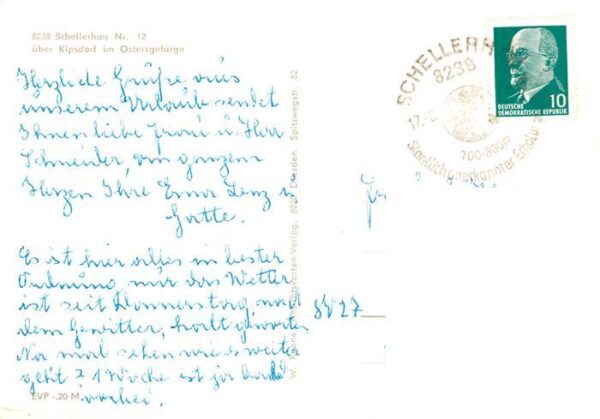 8238 Schellerhau Nr. 12
über Kipsdorf im Osterzgebirge
Herzliche Grüße aus
unserem Urlaub sendet
Ihnen liebe Frau u. Herr
Schneider, von ganzem
Herzen Ihre Erna Lenz u
Gatte.
Es ist hier alles in bester
Ordnung, nur das Wetter
ist seit Donnerstag, nach
dem Gewitter, kalt geworden
Nur mal sehen wie es weiter
geht? 1 Woche ist ja bald
vorbei.
EVP -,20 M
Verlag, Dresden, Spitzwegstr. 82
SCHELLERH
8238
17.
700-800m
Staatlich anerkannter Erholu
DEUTSCHE
DEMOKRATISCHE REPUBLIK
10